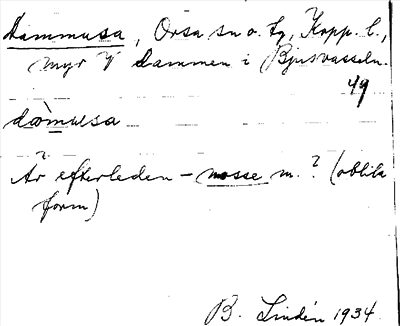 Dammusa, Orsa sn o. tg, Kopp. l.,
myr V dammen i Bjusvasseln.
49
dòmusa
Är efterleden -mosse m.? (oblik
form)
B. Lindén 1934.